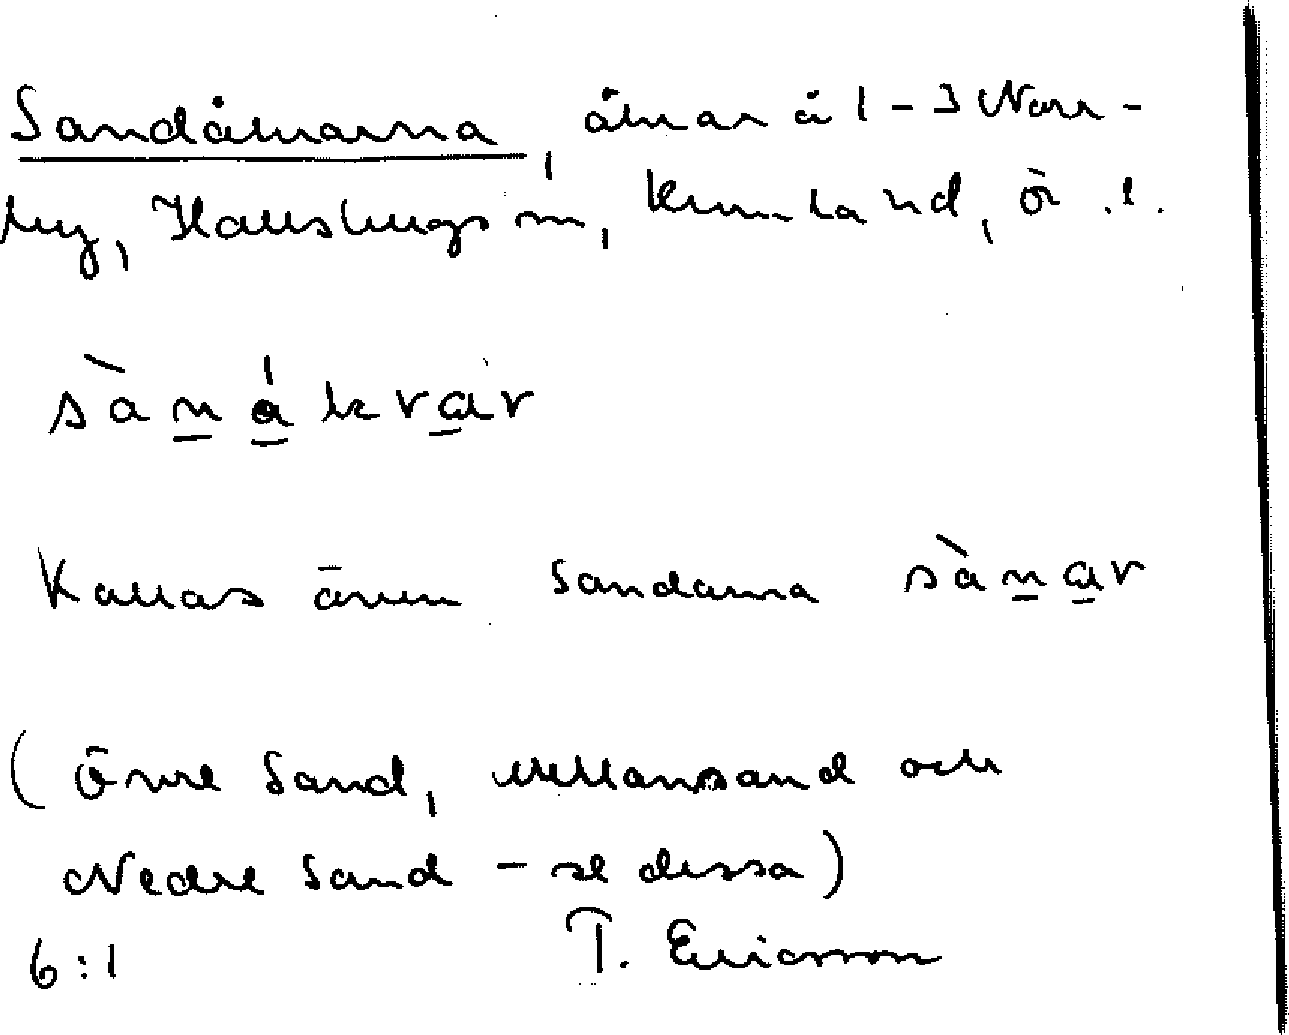 Sandåkrarna, åkrar å 1-3 Norr-
by, Hallsbergs sn, Kumla hd, Ör. l.
sànákrar
Kallas även Sandarna sànar
(Övre Sand, Mellansand och
Nedre Sand - se dessa)
6:1 T. Ericsson